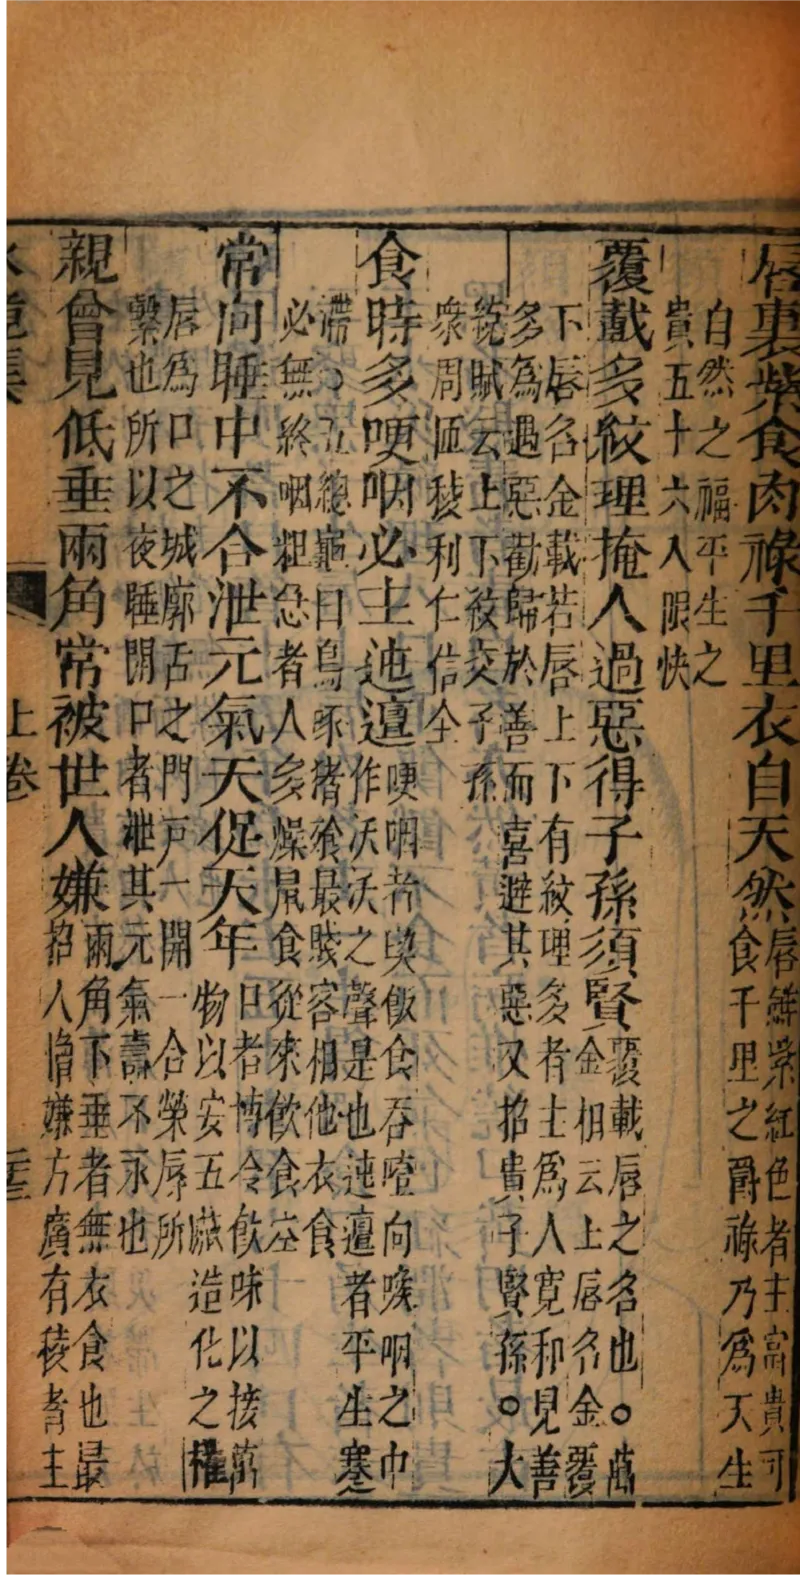 唇裏紫食肉祿千里衣自天然
唇鮮紫紅色者主富貴可
食千里之爵祿乃為天生
自然之福平生之
貴五十六入限快
覆載多紋理掩人過惡得子孫須賢
覆載唇之名也。萬
金相云上唇名金覆
下唇名金載若唇上下有紋理多者主為人寬和見善
多為遏惡勸歸於善而喜避其惡又招貴子賢孫。大
統賦云上下紋交子孫
衆周匝稜利仁信全
食時多哽咽必主迍邅
哽咽者與飯食吞噎向喉咽之中
作沃沃之聲是也迍邅者平生蹇
滯。五總龜曰烏豕猪飱最賤容相他衣食
必無終咽粗急者人多燥屎食從來飲食空
常向睡中不合泄元氣夭促天年
口者博冷飲味以接萬
物以安五臟造化之權
唇為口之城廓舌之門戶一開一合榮辱所
繫也所以夜睡開口者泄其元氣壽不永也
親曾見低垂兩角常被世人嫌
兩角下垂者無衣食也最
招人憎嫌方廣有稜者主
上卷